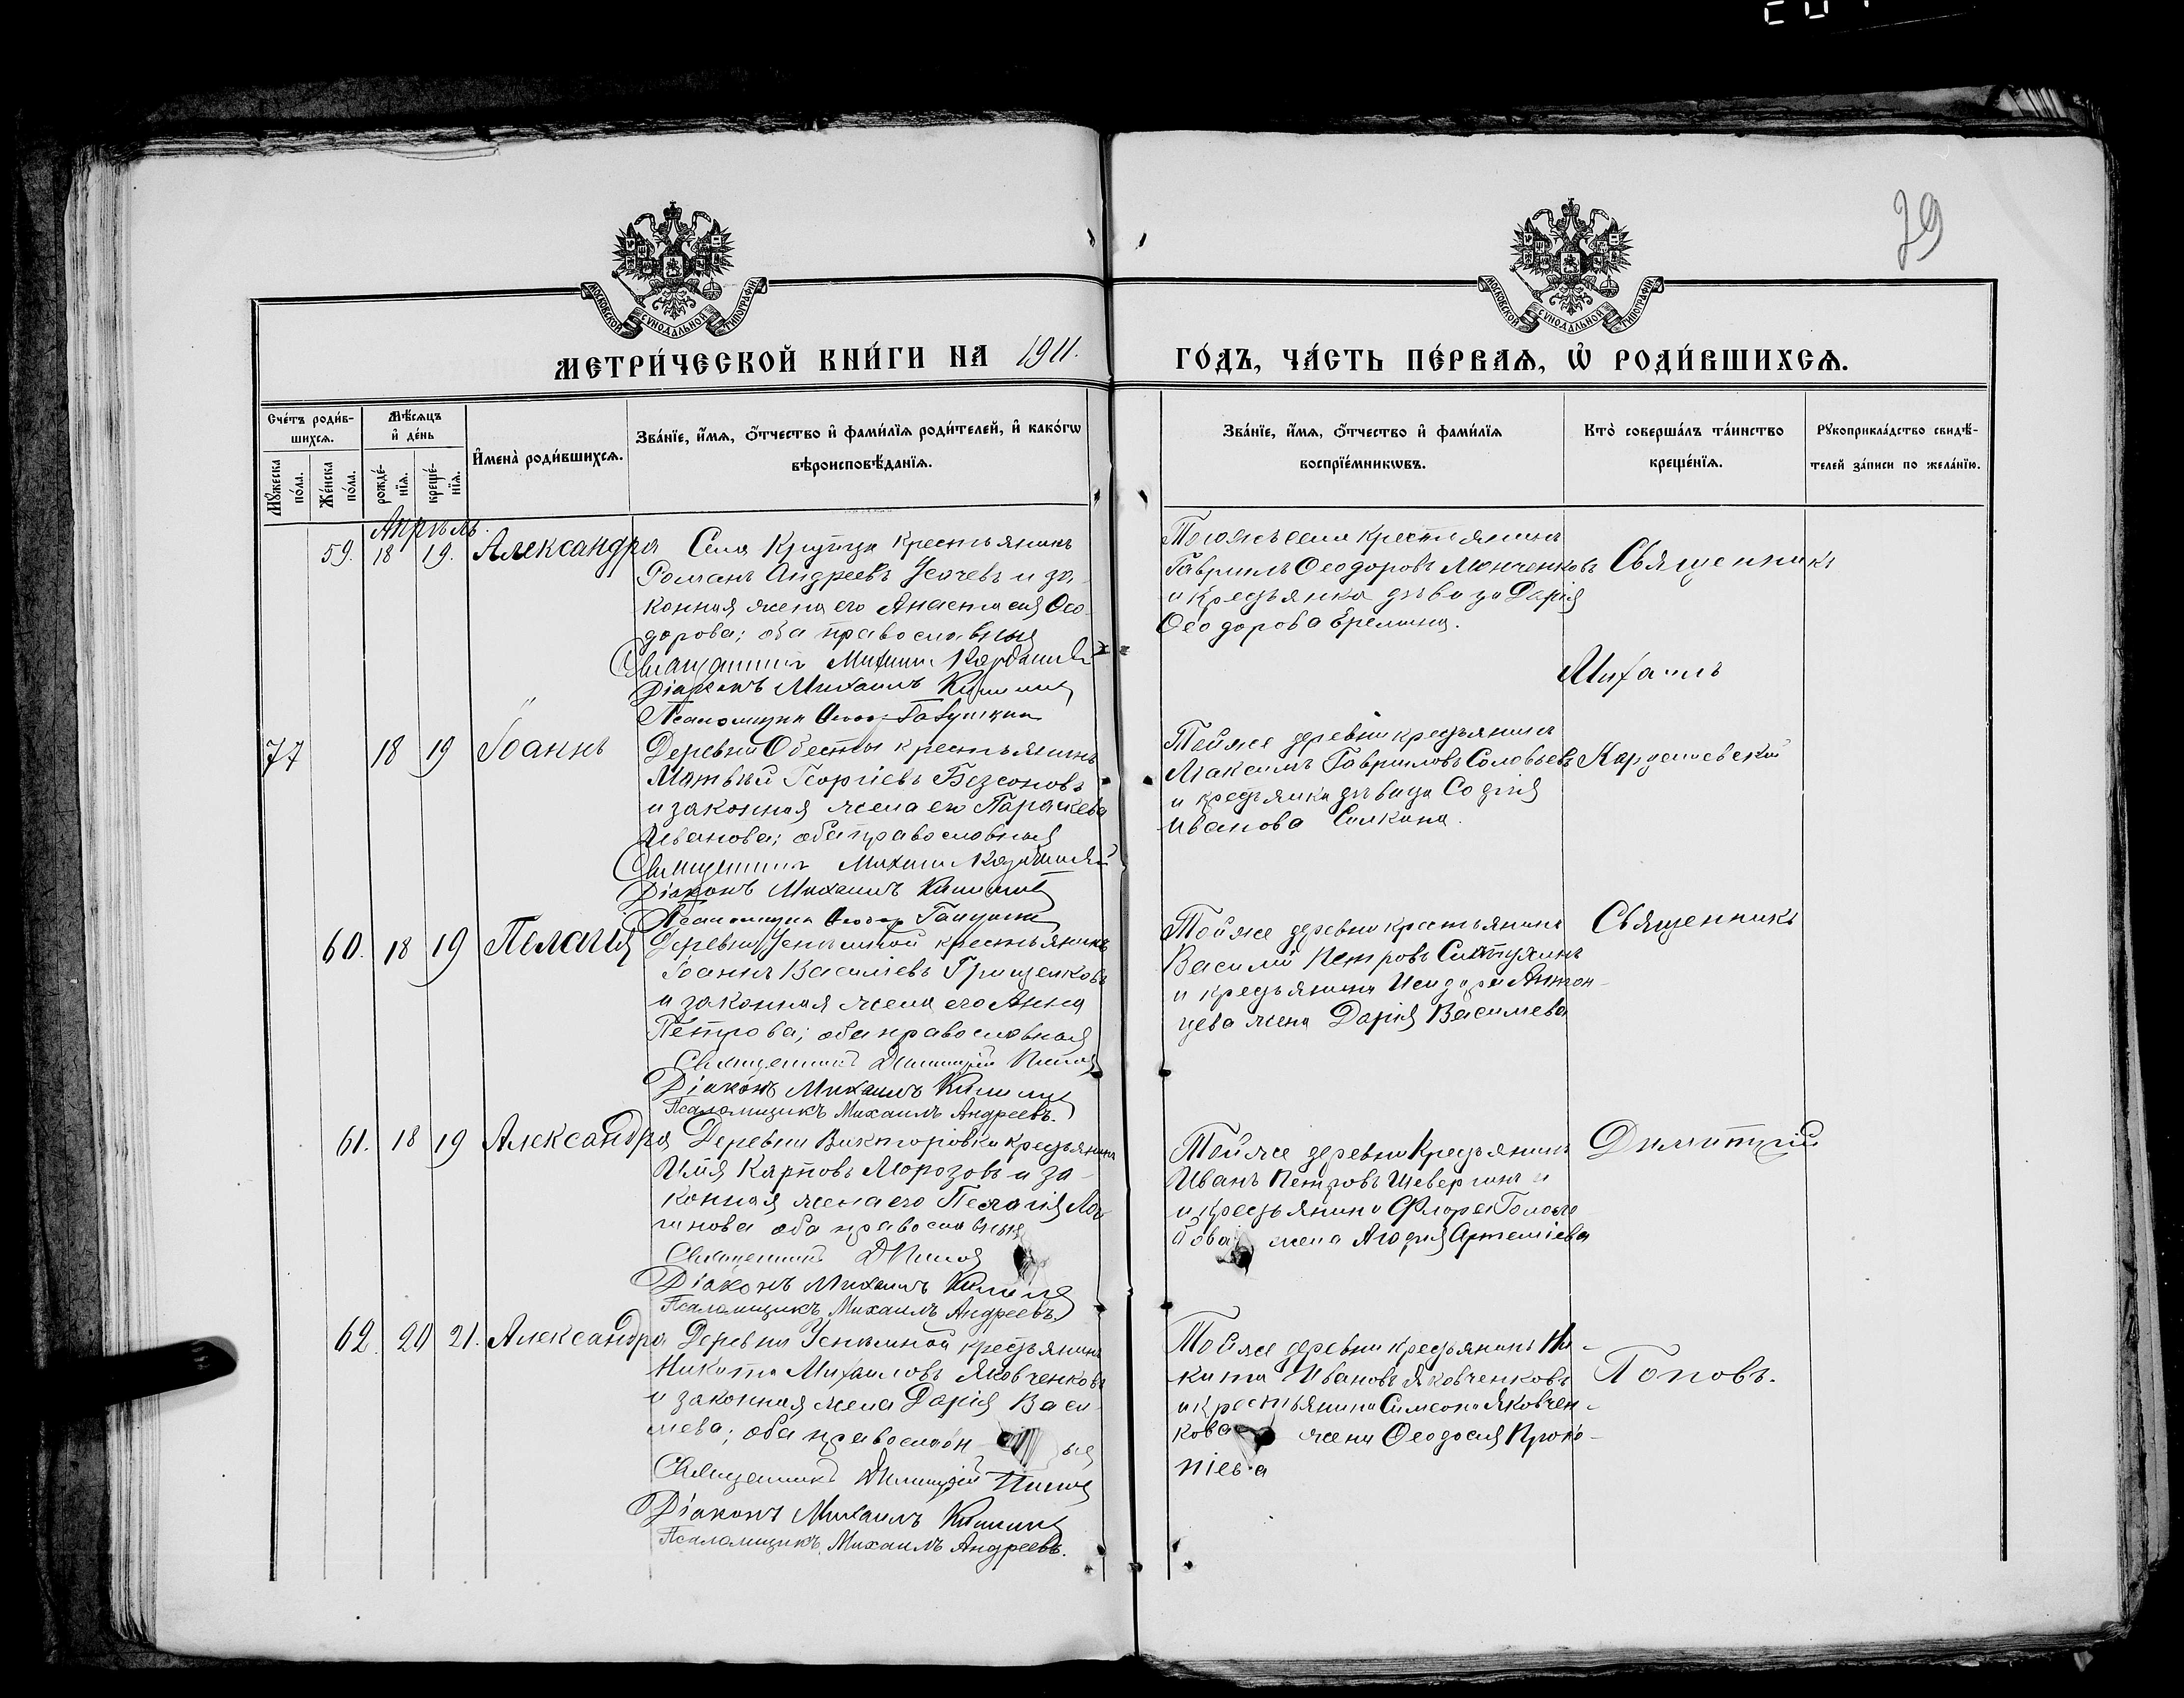 29
МОСКОВСКОЙ СѴНОДАЛЬНОЙ ТИПОГРАФІИ
МОСКОВСКОЙ СѴНОДАЛЬНОЙ ТИПОГРАФІИ
МЕТРИ́ЧЕСКОЙ КНИ́ГИ НА 1911. ГО́ДЪ, ЧА́СТЬ ПЕ́РВАѦ, Ѽ РОДИ́ВШИХСѦ.
Счéтъ роди́в-
шихсѧ.
Мꙋ́жеска
по́ла.
Же́нска
по́ла.
Мѣ́сѧцъ
и҆ де́нь
рожде́-
нїѧ.
креще́-
нїѧ.
И҆мена̀ роди́вшихсѧ.
Зва́нїе, и҆́мѧ, ѻ҆́тчество и҆ фами́лїѧ роди́телей, и҆ како́гѡ
вѣроисповѣ́данїѧ.
Зва́нїе, и҆́мѧ, ѻ҆́тчество и҆ фами́лїѧ
воспрїе́мникѡвъ.
Кто̀ соверша́лъ та́инство
креще́нїѧ.
Рꙋкоприкла́дство свидѣ́-
телей за́писи по жела́нїю.
Апрѣль.
59. 18 19. Александра
Села крестьянинъ
Романъ Андреевъ Усачевъ и за-
конная жена его Анастасія Ѳео-
дорова; оба православныя
Священникъ Михаилъ
Діаконъ Михаилъ
Псаломщикъ
Тогоже села крестьянинъ
Гавриилъ Ѳеодоровъ Минченковъ
и крестьянка дѣвица Дарія
Ѳеодорова Еремина.
Священникъ
Михаилъ
77 18 19 Іоаннъ
Деревни крестьянинъ
Матвѣй Георгіевъ Безсоновъ
и законная жена его Параскева
Иванова; оба православныя
Священникъ Михаилъ
Діаконъ Михаилъ
Псаломщикъ
Тойже деревни крестьянинъ
Максимъ Гавриловъ Соловьевъ
и крестьянка дѣвица
Иванова
Кардашевскій
60. 18 19 Пелагія
Деревни Успенской крестьянинъ
Іоаннъ Василіевъ Грищенковъ
и законная жена его Анна
Петрова; оба православныя
Священникъ Димитрій Поповъ
Діаконъ Михаилъ
Псаломщикъ Михаилъ Андреевъ.
Тойже деревни крестьянинъ
Василій Петровъ
и крестьянина Исидора Антон-
цева жена Дарія Васильева
Священникъ
61. 18 19 Александра
Деревни Викторовки крестьянинъ
Илія Карповъ Морозовъ и за-
конная жена его Пелагія Лог-
гинова оба православныя
Священникъ Д Поповъ
Діаконъ Михаилъ
Псаломщикъ Михаилъ Андреевъ.
Тойже деревни крестьянинъ
Иванъ Петровъ
и крестьянина Флора
жена Агафія Артеміева
Димитрій
62. 20 21. Александра
Деревни Успенской крестьянинъ
Никита Михаиловъ Яковченковъ
и законная жена Дарія Васи-
льева; оба православныя
Священникъ Димитрій Поповъ
Діаконъ Михаилъ
Псаломщикъ Михаилъ Андреевъ.
Тойже деревни крестьянинъ Ни-
кита Ивановъ Яковченковъ
и крестьянина Симеона Яковчен-
кова жена Ѳеодосія Проко-
піева
Поповъ.